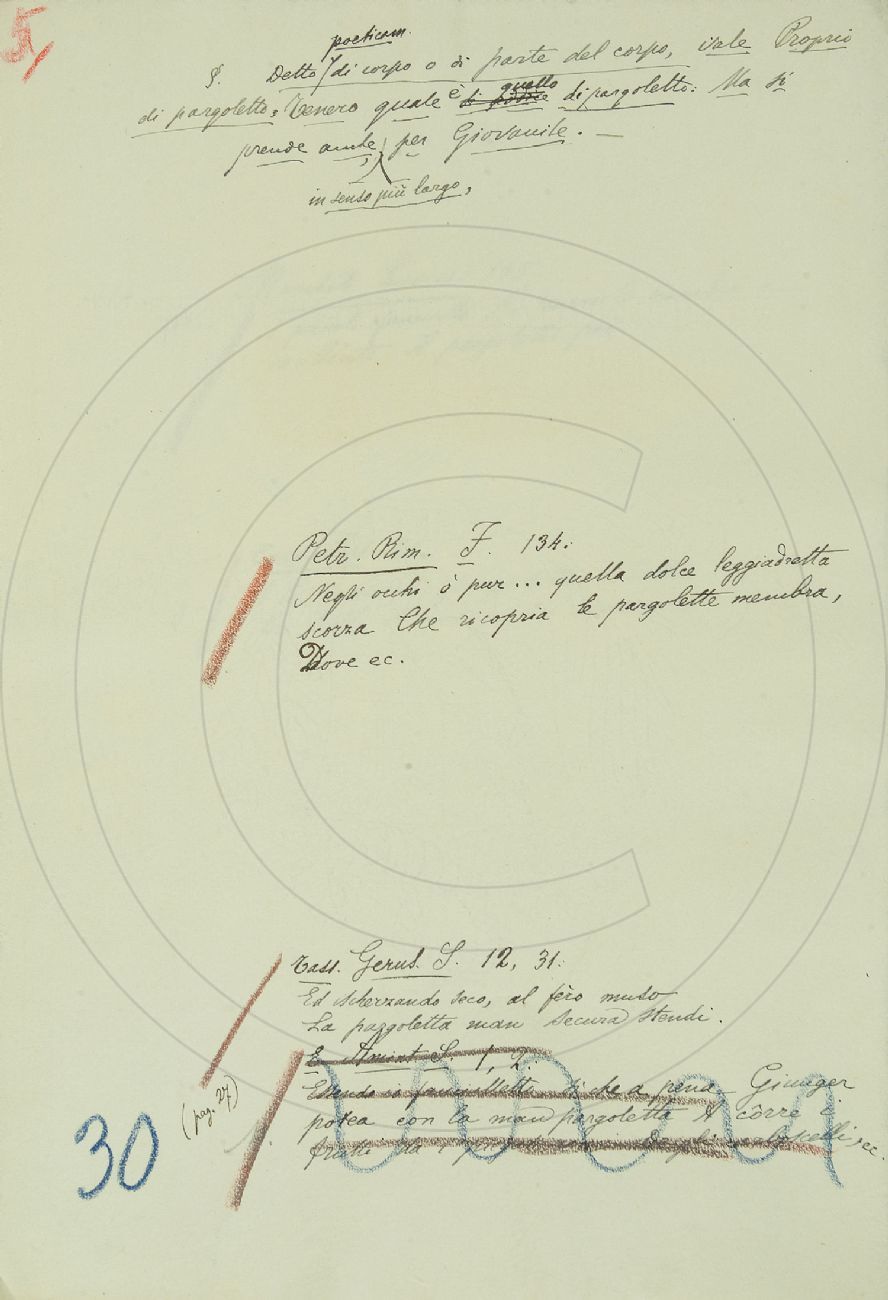 5
poeticam.
§. Detto di corpo o di parte del corpo, vale Proprio
di pargoletto, Tenero quale è quello di pargoletto: Ma si
prende anche per Giovanile. —
in senso più largo,
Petr. Rim. F. 134:
Negli occhi ò pur ... quella dolce leggiadretta
scorza Che ricopria le pargolette membra,
Dove ec.
Tass. Gerus. S. 12, 31:
Ed ischerzando seco, al fero muso
La pargoletta man secura stendi.
E Amint. S. 1, 2:
Essendo io fanciulletto, sì che a pena Giunger
potea con la man pargoletta A côrre i
frutti da i rami Degli arboscelli, ec.
(pag. 27)
30